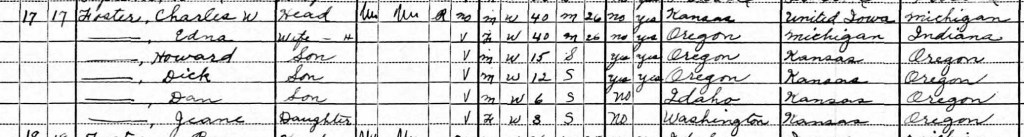 17 17 Foster, Charles W Head Un Un R no m W 40 m 26 no yes Kansas United Iowa michigan
———, Edna Wife - H V F W 40 m 26 no yes Oregon michigan Indiana
———, Howard Son V m W 15 S yes yes Oregon Kansas Oregon
———, Dick Son V m W 12 S yes yes Oregon Kansas Oregon
———, Dan Son V m W 6 S no Idaho Kansas Oregon
———, Jeane Daughter V F W 8 S no Washington Kansas Oregon